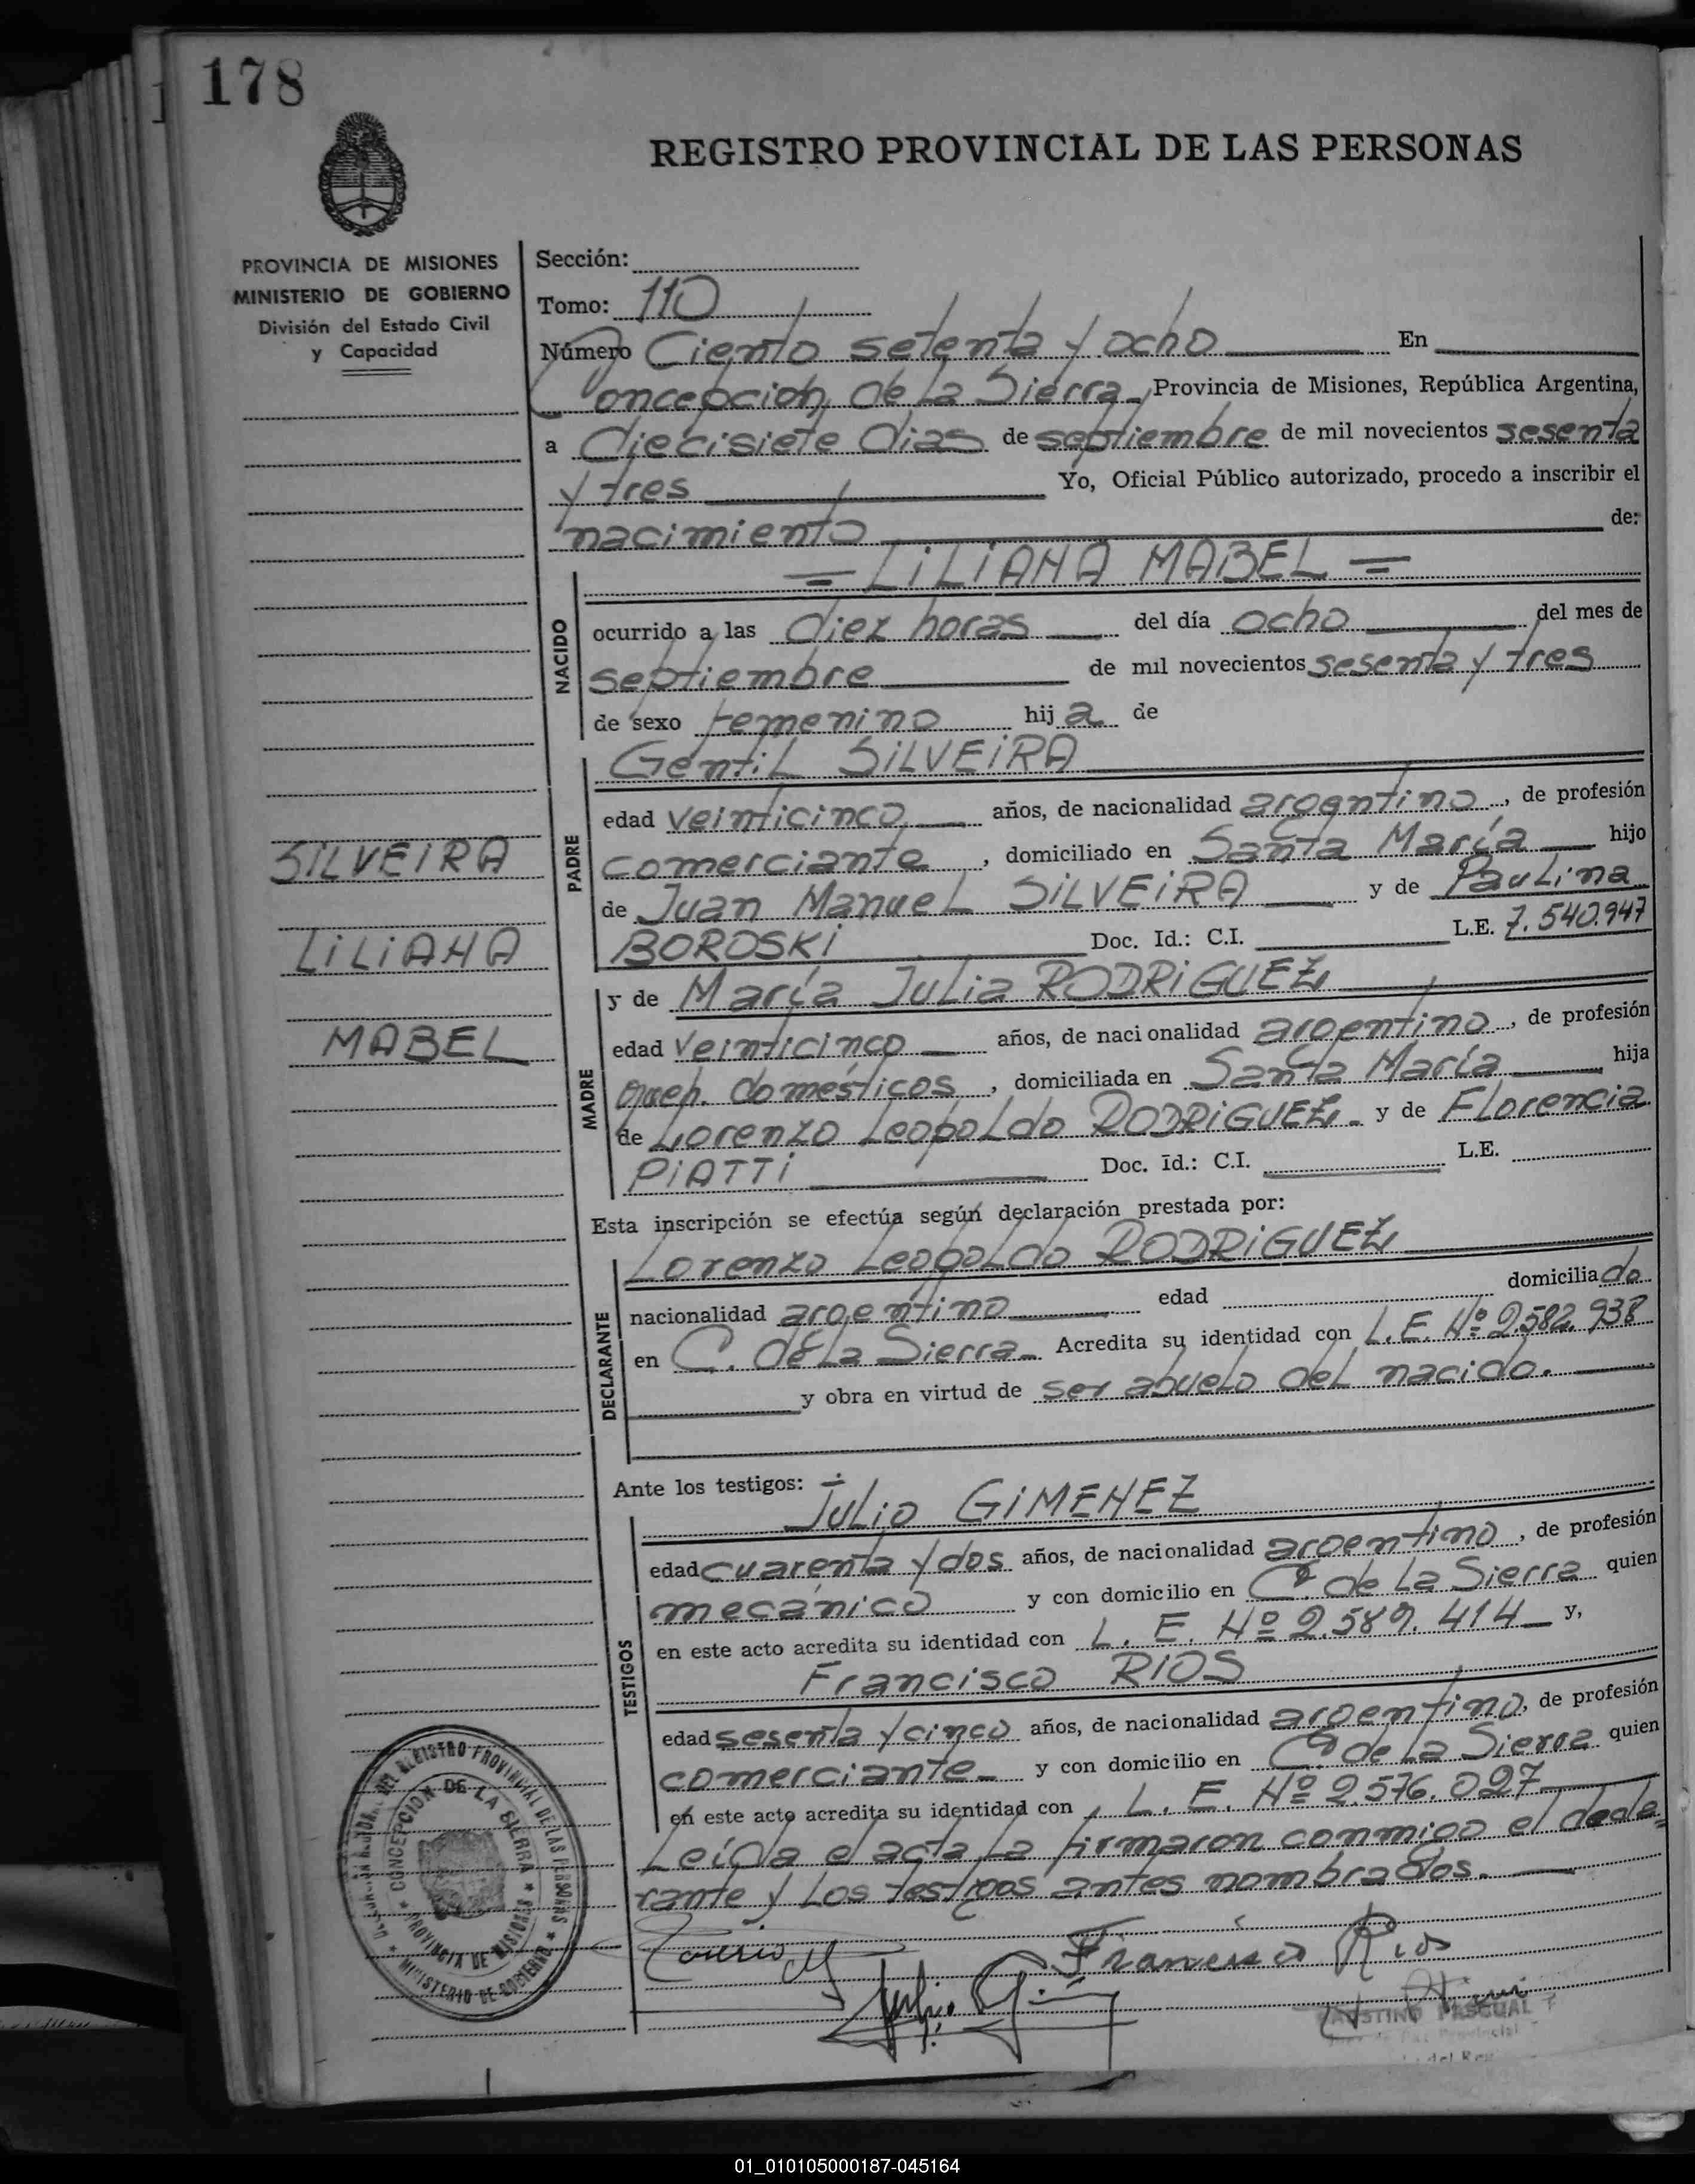 178
REGISTRO PROVINCIAL DE LAS PERSONAS
PROVINCIA DE MISIONES
MINISTERIO DE GOBIERNO
División del Estado Civil
y Capacidad
SILVEIRA
LILIANA
MABEL
Sección:
Tomo: 110
Número Ciento setenta y ocho En
Concepción de La Sierra Provincia de Misiones, República Argentina,
a diecisiete dias de septiembre de mil novecientos sesenta
y tres Yo, Oficial Público autorizado, procedo a inscribir el
nacimiento de:
= LILIANA MABEL =
NACIDO
ocurrido a las diez horas del día ocho del mes de
septiembre de mil novecientos sesenta y tres
de sexo femenino hija de
PADRE
Gentil SILVEIRA
edad veinticinco años, de nacionalidad argentino, de profesión
comerciante, domiciliado en Santa María hijo
de Juan Manuel SILVEIRA y de Paulina
BOROSKI Doc. Id.: C.I. L.E. 7.540.947
MADRE
y de María Julia RODRIGUEZ
edad veinticinco años, de nacionalidad argentino, de profesión
queh. domésticos, domiciliada en Santa María hija
de Lorenzo Leopoldo RODRIGUEZ y de Florencia
PIATTI Doc. Id.: C.I. L.E.
Esta inscripción se efectúa según declaración prestada por:
DECLARANTE
Lorenzo Leopoldo RODRIGUEZ
nacionalidad argentino edad domiciliado
en C. de la Sierra Acredita su identidad con L.E. Nº 2.582.938
y obra en virtud de ser abuelo del nacido.
Ante los testigos: Julio GIMENEZ
TESTIGOS
edad cuarenta y dos años, de nacionalidad argentino, de profesión
mecánico y con domicilio en C. de La Sierra quien
en este acto acredita su identidad con L. E. Nº 2.589.414 y,
Francisco RIOS
edad sesenta y cinco años, de nacionalidad argentino, de profesión
comerciante y con domicilio en C. de La Sierra quien
en este acto acredita su identidad con L. E. Nº 2.576.027
Leída el acta la firmaron conmigo el decla=
rante y los testigos antes nombrados.
Francisco Rios
Julio
FAUSTINO PASCUAL
REGISTRO PROVINCIAL DE LAS PERSONAS
CONCEPCION DE LA SIERRA
PROVINCIA DE MISIONES
MINISTERIO DE GOBIERNO
01_010105000187-045164